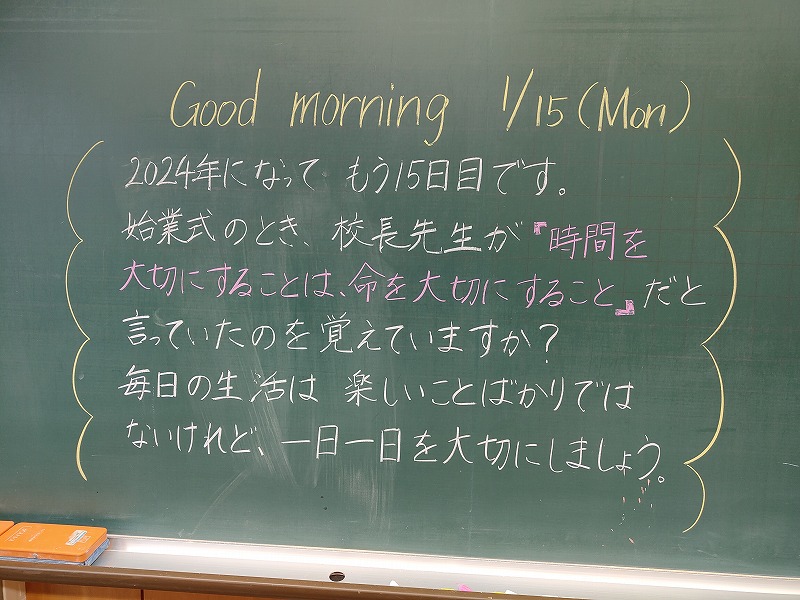 Good morning 1/15(Mon)
2024年になって もう15日目です。
始業式のとき、校長先生が『時間を
大切にすることは、命を大切にすること』だと
言っていたのを覚えていますか?
毎日の生活は 楽しいことばかりでは
ないけれど、一日一日を大切にしましょう。